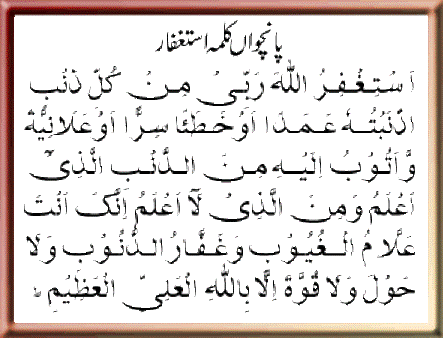 پانچواں کلمہ استغفار
اَسْتَغْفِرُ اللّٰهَ رَبِّىْ مِنْ كُلِّ ذَنْبٍ
اَذْنَبْتُهٗ عَمَدًا اَوْ خَطَئًا سِرًّا اَوْ عَلَانِيَّةً
وَّاَتُوْبُ اِلَيْهِ مِنَ الذَّنْبِ الَّذِىْٓ
اَعْلَمُ وَمِنَ الَّذِىْ لَآ اَعْلَمُ اِنَّكَ اَنْتَ
عَلَّامُ الْغُيُوْبِ وَغَفَّارُ الذُّنُوْبِ وَلَا
حَوْلَ وَلَا قُوَّةَ اِلَّا بِاللّٰهِ الْعَلِىِّ الْعَظِيْمِ ۔